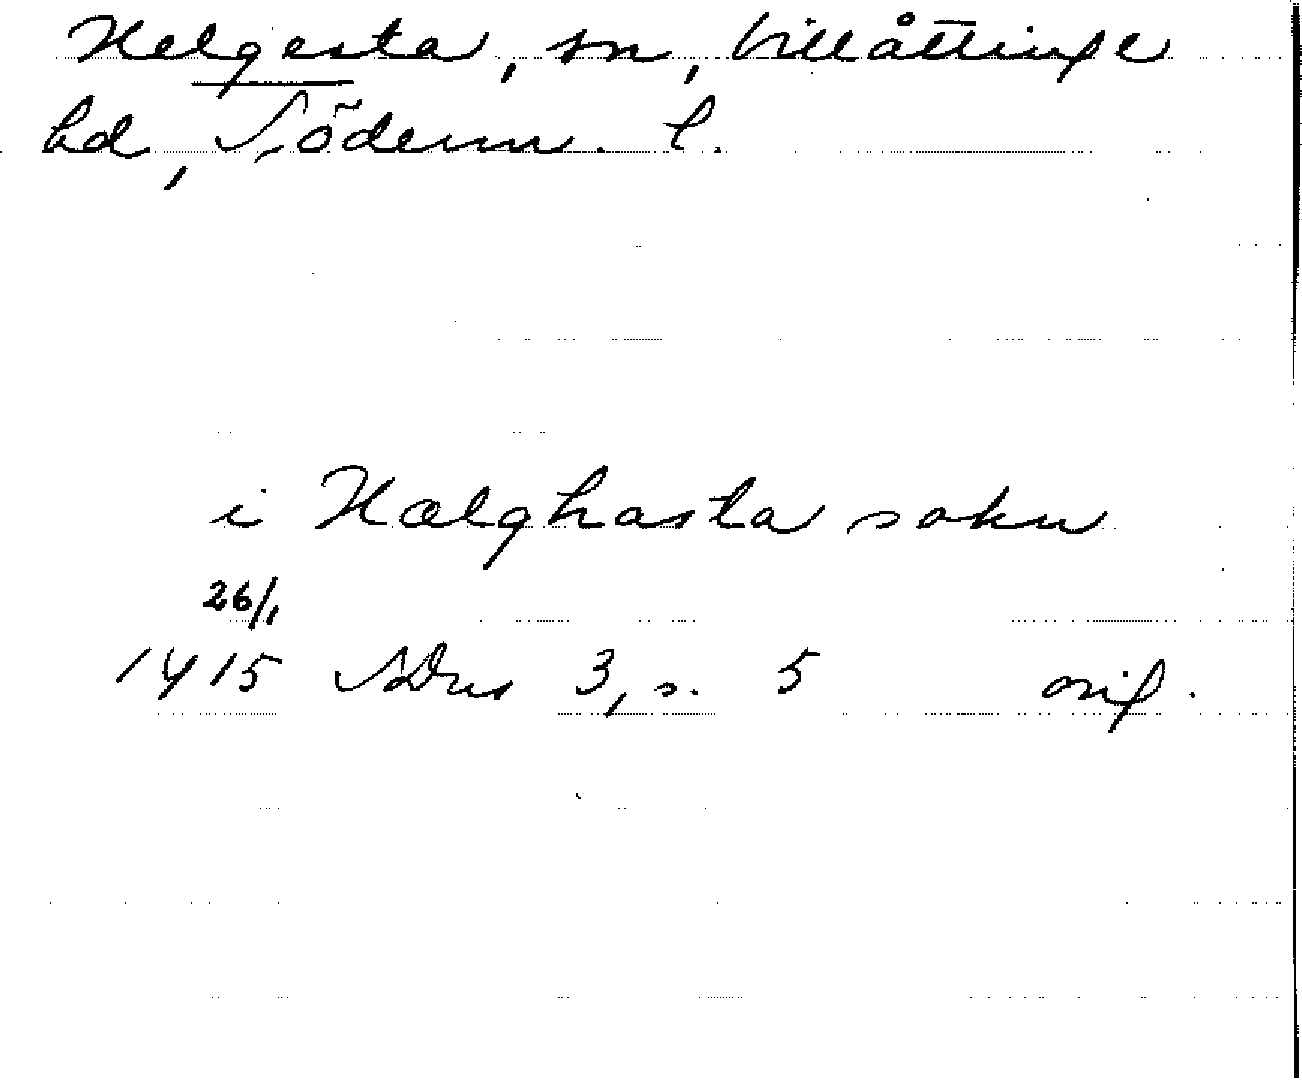 Helgesta, sn, Villåttinge
hd, Söderm. l.
i Hælghasta sokn
26/1
1415 SDns 3, s. 5 orig.